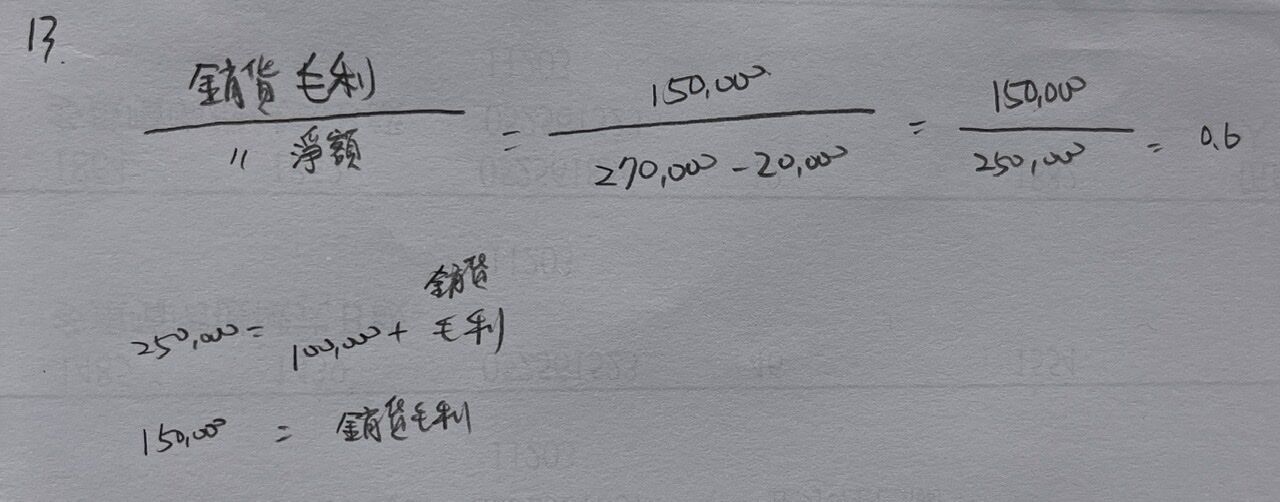 13.
銷貨毛利 / 〃 淨額 = 150,000 / 270,000 - 20,000 = 150,000 / 250,000 = 0.6
250,000 = 100,000 + 銷貨毛利
150,000 = 銷貨毛利